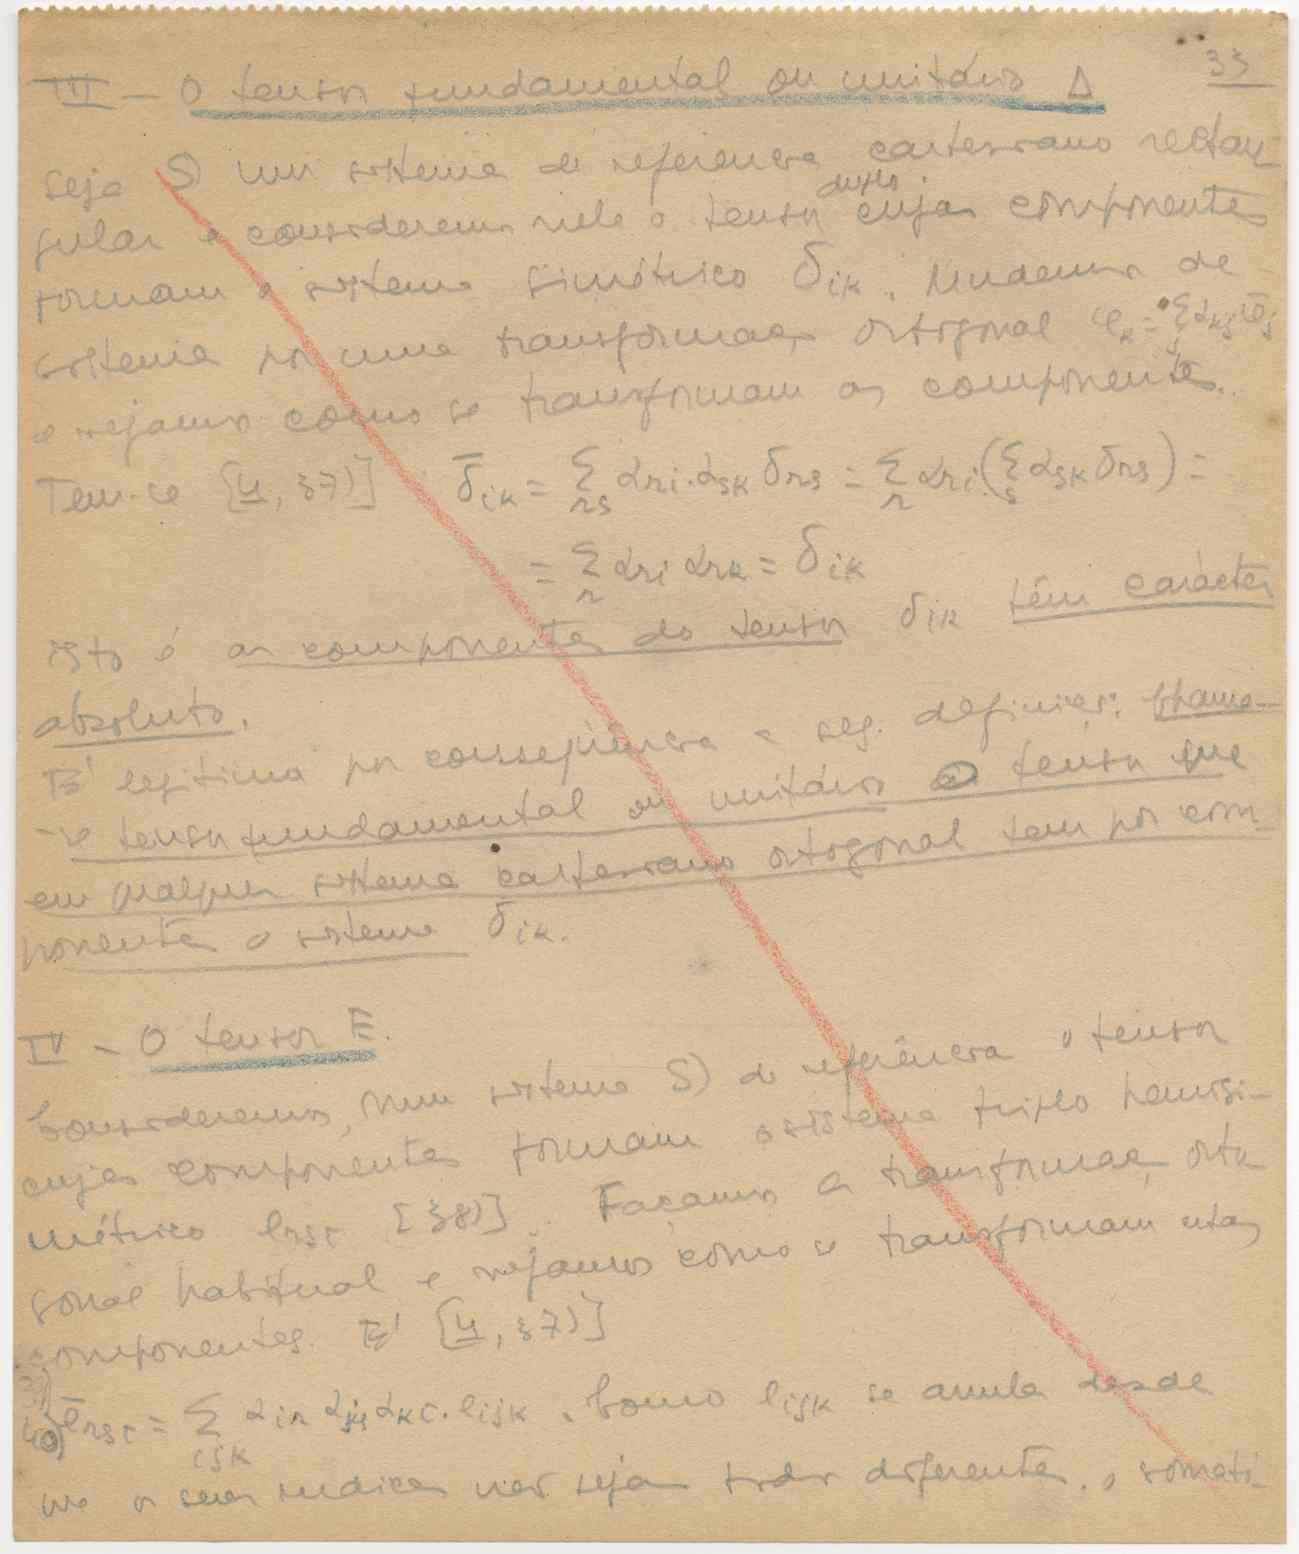 33
III – O tensor fundamental ou unitário Δ
Seja S) um sistema de referência cartesiano rectan-
gular e consideremos nele o tensor duplo cujas componentes
formam o sistema simétrico δik. Mudemos de
sistema por uma transformação ortogonal φk = Σj αkj φ̄j
e vejamos como se transformam as componentes.
Tem-se [4, §7)] δ̄ik = Σrs αri.αsk δrs = Σr αri.(Σs αsk δrs) =
= Σr αri αrk = δik
isto é as componentes do tensor δik têm carácter
absoluto.
É legítima por conseqüência a seg. definição: chama-
-se tensor fundamental ou unitário o tensor que
em qualquer sistema cartesiano ortogonal tem por com-
ponentes o sistema δik.
IV – O tensor E.
Consideremos, num sistema S) de referência o tensor
cujas componentes formam o sistema triplo hemisi-
métrico erst [§8)]. Façamos a transformação orto-
gonal habitual e vejamos como se transformam estas
componentes. É [4, §7)]
ērst = Σijk αir αjs αkt. eijk. Como eijk se anula desde
que os seus índices não sejam todos diferentes, o somató-